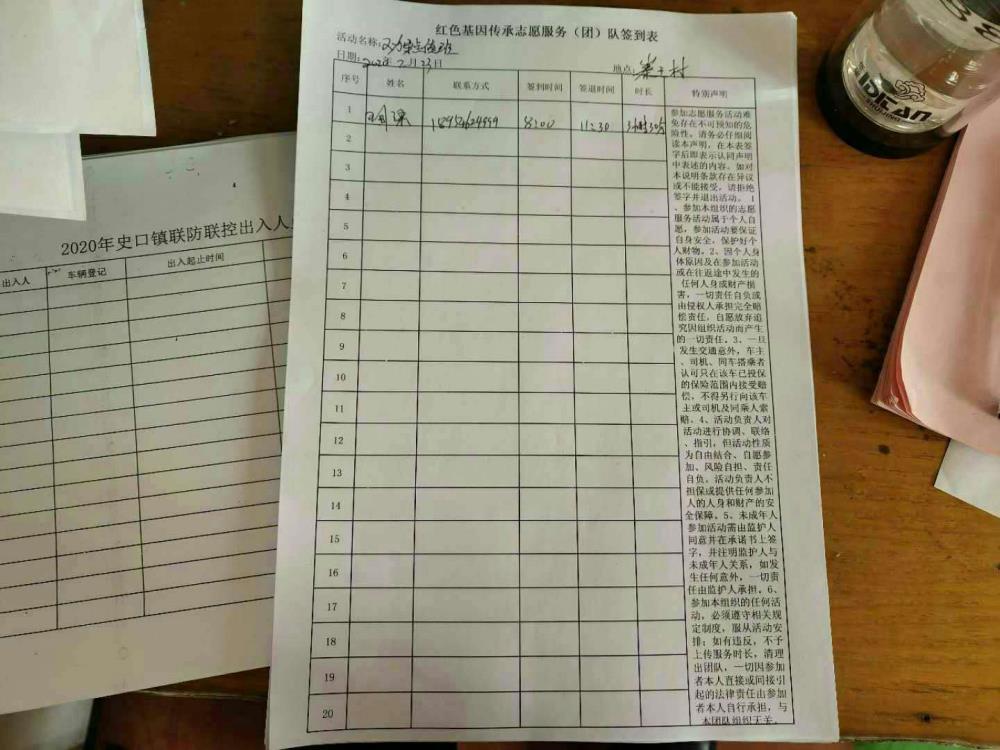 红色基因传承志愿服务（团）队签到表
活动名称:
日期: 2020年2月23日
地点:
序号 姓名 联系方式 签到时间 签退时间 时长 特别声明
1 8:00 11:30 3小时30分
2
3
4
5
6
7
8
9
10
11
12
13
14
15
16
17
18
19
20
参加志愿服务活动难
免存在不可预知的危
险性。请务必仔细阅
读本声明，在本表签
字后即表示认同声明
中表述的内容。如对
本说明条款存在异议
或不能接受，请拒绝
签字并退出活动。1
、参加本组织的志愿
服务活动属于个人自
愿，参加活动要保证
自身安全，保护好个
人财物。2、因个人身
体原因及在参加活动
或在往返途中发生的
任何人身或财产损
害，一切责任自负或
由侵权人承担完全赔
偿责任，自愿放弃追
究因组织活动而产生
的一切责任。3、一旦
发生交通意外，车主
、司机、同车搭乘者
认可只在该车已投保
的保险范围内接受赔
偿，不得另行向该车
主或司机及同乘人索
赔。4、活动负责人对
活动进行协调、联络
、指引，但活动性质
为自由结合、自愿参
加、风险自担、责任
自负。活动负责人不
担保或提供任何参加
人的人身和财产的安
全保障。5、未成年人
参加活动需由监护人
同意并在承诺书上签
字，并注明监护人与
未成年人关系，如发
生任何意外，一切责
任由监护人承担。6、
参加本组织的任何活
动，必须遵守相关规
定制度，服从活动安
排；如有违反，不予
上传服务时长，清理
出团队，一切因参加
者本人直接或间接引
起的法律责任由参加
者本人自行承担，与
本团队组织无关。
2020年史口镇联防联控出入人
出入人 车辆登记 出入起止时间